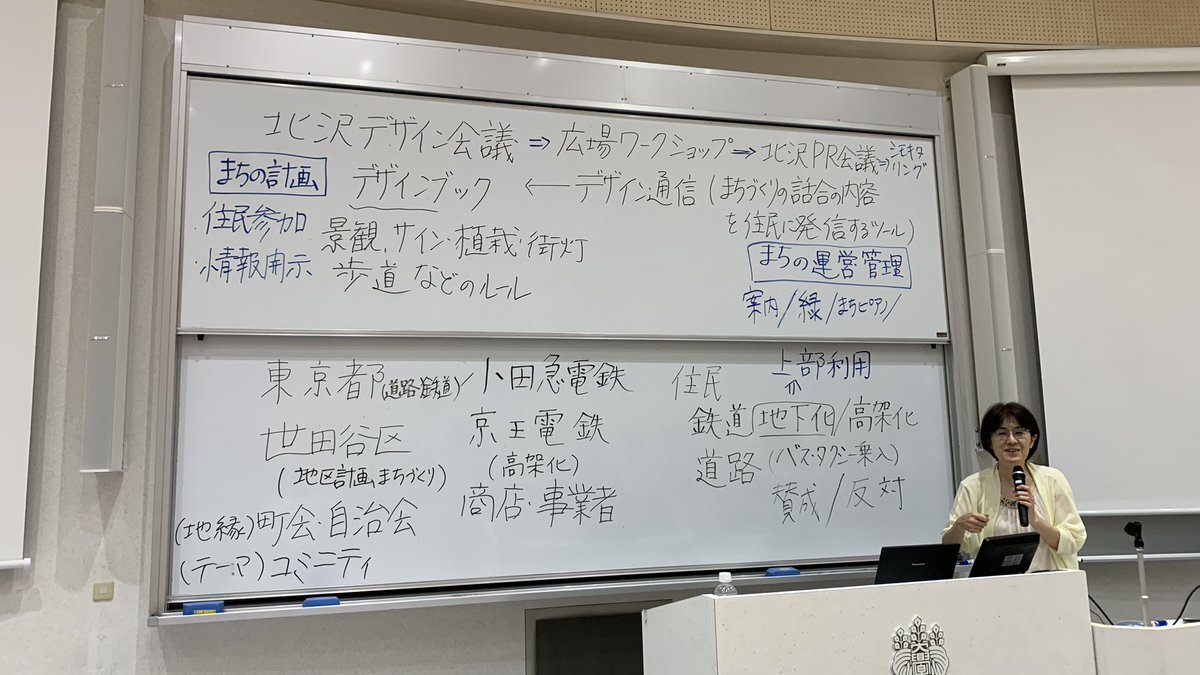 北沢デザイン会議⇒広場ワークショップ⇒北沢PR会議⇒シモキタリング
まちの計画
デザインブック ← デザイン通信(まちづくりの話合の内容
を住民に発信するツール)
住民参加
情報開示
景観、サイン・植栽・街灯
歩道などのルール
まちの運営管理
案内/緑/まちピアノ/
東京都(道路・鉄道)/小田急電鉄
世田谷区
(地区計画、まちづくり)
京王電鉄
(高架化)
(地縁)町会・自治会
(テーマ)コミュニティ
商店・事業者
住民
上部利用
⇑
鉄道 地下化/高架化
道路(バス・タクシー乗入)
賛成/反対